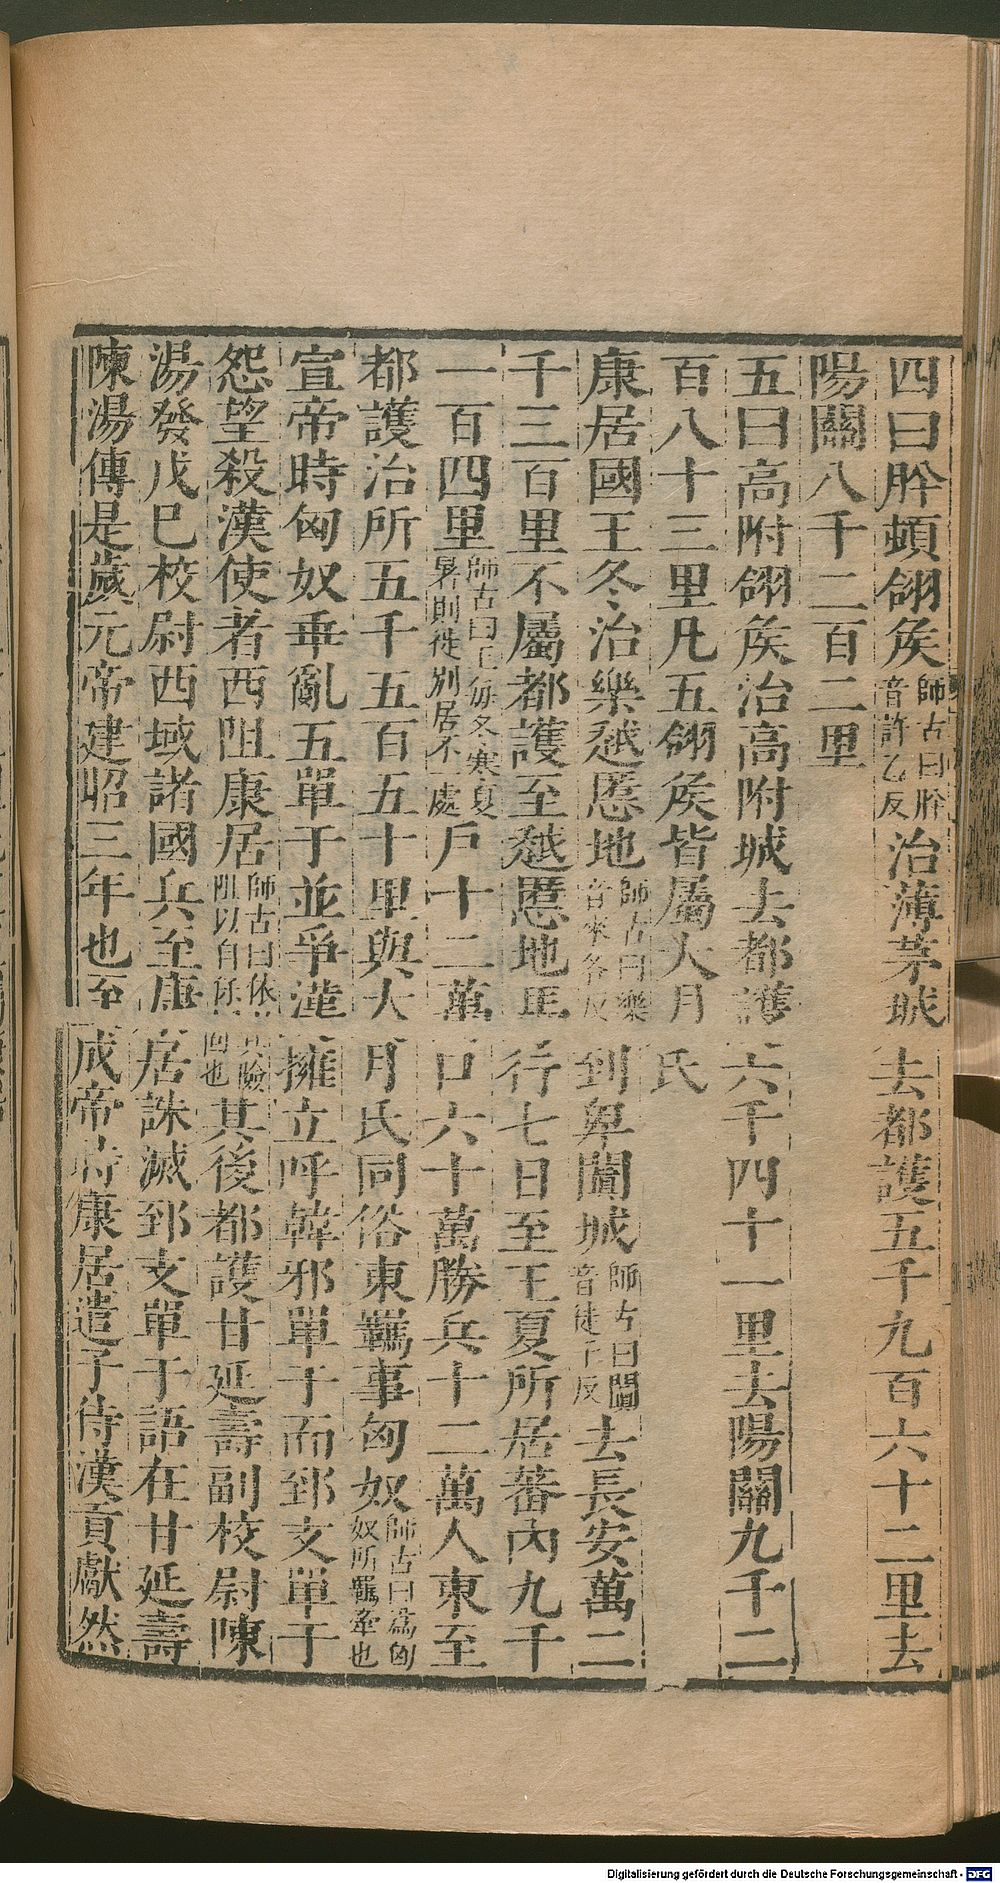 四曰肸頓翎侯師古曰肸音許乙反治薄茅城去都護五千九百六十二里去
陽關八千二百二里
五曰高附翎侯治高附城去都護六千四十一里去陽關九千二
百八十三里凡五翎侯皆屬大月氏
康居國王冬治樂越匿地師古曰樂音來各反到卑闐城師古曰闐音徒千反去長安萬二
千三百里不屬都護至越匿地馬行七日至王夏所居蕃內九千
一百四里師古曰王每冬寒夏暑則徙別居不一處戶十二萬口六十萬勝兵十二萬人東至
都護治所五千五百五十里與大月氏同俗東羈事匈奴師古曰為匈奴所羈牽也
宣帝時匈奴乖亂五單于並爭漢擁立呼韓邪單于而郅支單于
怨望殺漢使者西阻康居師古曰依阻以自保其險固也其後都護甘延壽副校尉陳
湯發戊巳校尉西域諸國兵至康居誅滅郅支單于語在甘延壽
陳湯傳是歲元帝建昭三年也至成帝時康居遣子侍漢貢獻然
Digitalisierung gefördert durch die Deutsche Forschungsgemeinschaft - DFG